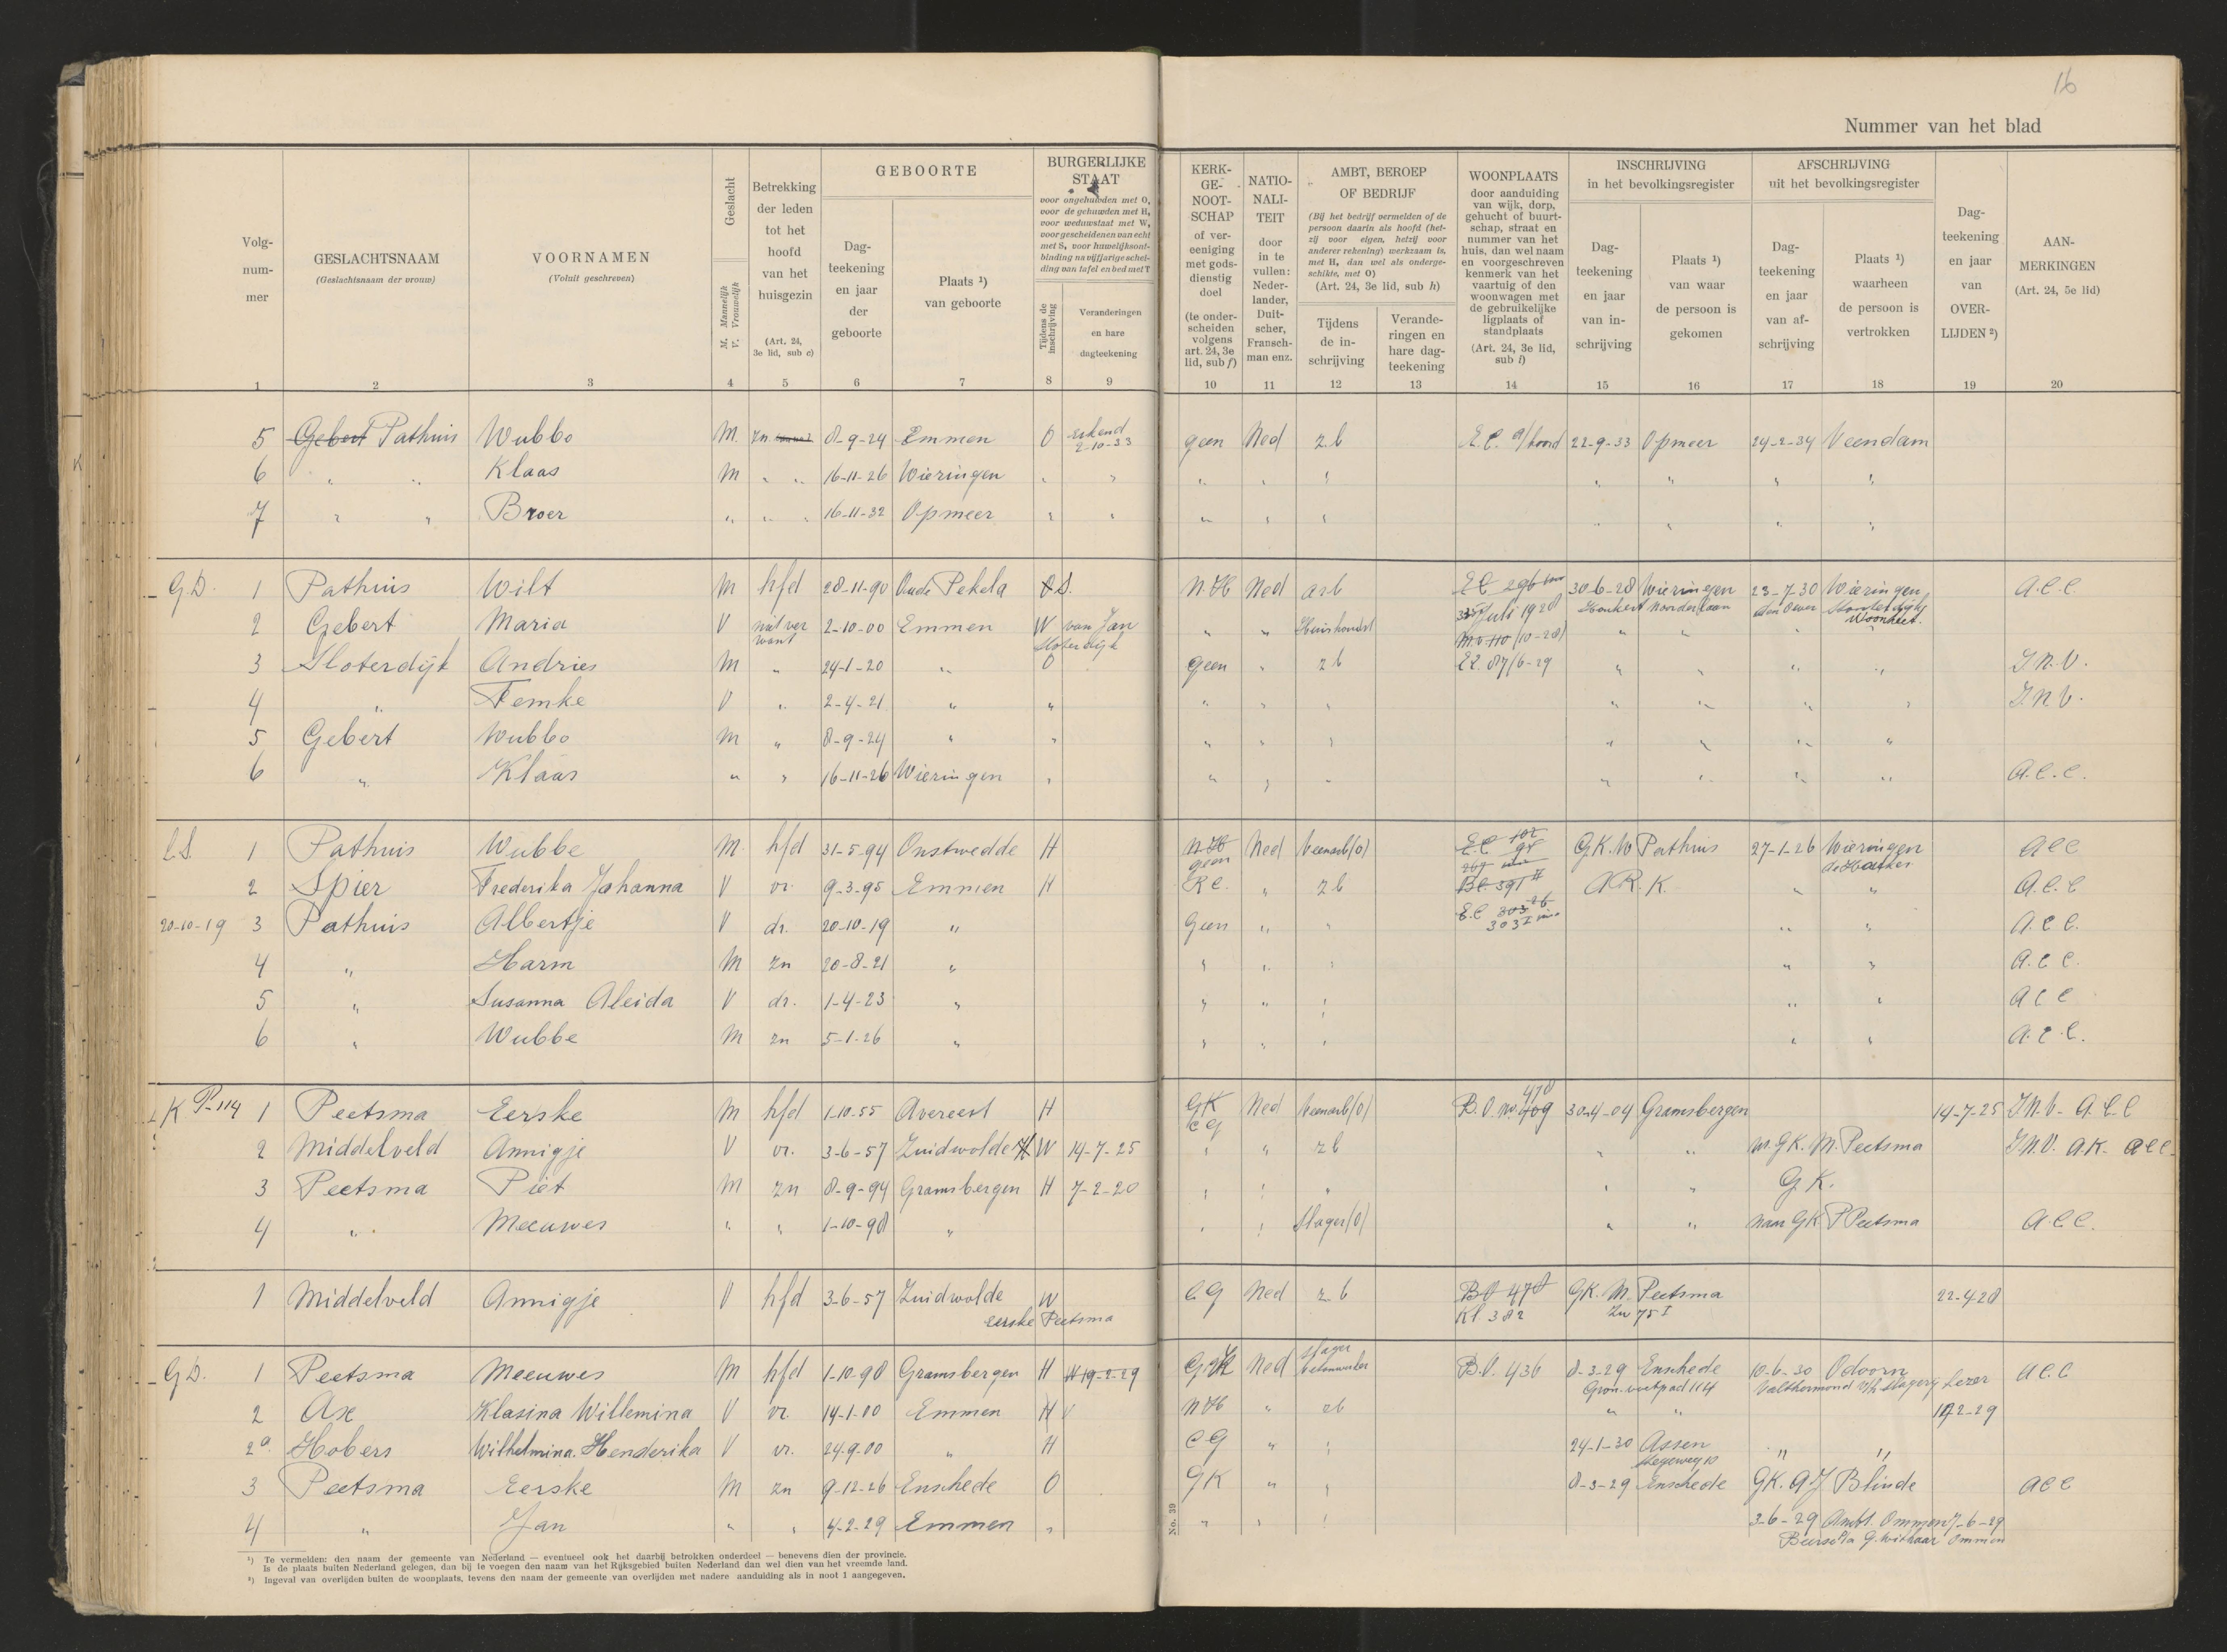 16
Nummer van het blad
Volg-
num-
mer
GESLACHTSNAAM
(Geslachtsnaam der vrouw)
VOORNAMEN
(Voluit geschreven)
Geslacht
M. Mannelijk
V. Vrouwelijk
Betrekking
der leden
tot het
hoofd
van het
huisgezin
(Art. 24,
3e lid, sub c)
GEBOORTE
Dag-
teekening
en jaar
der
geboorte
Plaats ¹)
van geboorte
BURGERLIJKE
STAAT
voor ongehuwden met O,
voor de gehuwden met H,
voor weduwstaat met W,
voor gescheidenen van echt
met S, voor huwelijksont-
binding na vijfjarige schei-
ding van tafel en bed met T
Tijdens de
inschrijving
Veranderingen
en hare
dagteekening
KERK-
GE-
NOOT-
SCHAP
of ver-
eeniging
met gods-
dienstig
doel
(te onder-
scheiden
volgens
art. 24, 3e
lid, sub f)
NATIO-
NALI-
TEIT
door
in te
vullen:
Neder-
lander,
Duit-
scher,
Fransch-
man enz.
AMBT, BEROEP
OF BEDRIJF
(Bij het bedrijf vermelden of de
persoon daarin als hoofd (het-
zij voor eigen, hetzij voor
anderer rekening) werkzaam is,
met H, dan wel als onderge-
schikte, met O)
(Art. 24, 3e lid, sub h)
Tijdens
de in-
schrijving
Verande-
ringen en
hare dag-
teekening
WOONPLAATS
door aanduiding
van wijk, dorp,
gehucht of buurt-
schap, straat en
nummer van het
huis, dan wel naam
en voorgeschreven
kenmerk van het
vaartuig of den
woonwagen met
de gebruikelijke
ligplaats of
standplaats
(Art. 24, 3e lid,
sub i)
INSCHRIJVING
in het bevolkingsregister
Dag-
teekening
en jaar
van in-
schrijving
Plaats ¹)
van waar
de persoon is
gekomen
AFSCHRIJVING
uit het bevolkingsregister
Dag-
teekening
en jaar
van af-
schrijving
Plaats ¹)
waarheen
de persoon is
vertrokken
Dag-
teekening
en jaar
van
OVER-
LIJDEN ²)
AAN-
MERKINGEN
(Art. 24, 5e lid)
1 2 3 4 5 6 7 8 9 10 11 12 13 14 15 16 17 18 19 20
5 Gebert Pathuis Wubbo M. zn 8-9-24 Emmen O erkend 2-10-33 geen Ned z.b E.C. 22-9-33 Opmeer 24-2-34 Veendam
6 " " Klaas M " " 16-11-26 Wieringen " " " " " " " " "
7 " " Broer " " " 16-11-32 Opmeer " " " " " " " " "
G.D. 1 Pathuis Wilt M hfd 28-11-90 Oude Pekela S. N.H Ned arb E C 296 30-6-28 Wieringen 23-7-30 Wieringen A.C.C.
Juli 1928 Noorderlaan den Oever
2 Gebert Maria V niet ver want 2-10-00 Emmen W van Jan Sloterdijk " " Huishoudst " " " "
3 Sloterdijk Andries M " 24-1-20 " O geen " z b E2. 87/6-29 " " " " I.N.V.
4 " Femke V " 2-4-21 " " " " " " " " " I.N.V.
5 Gebert Wubbo M " 8-9-24 " " " " " " " " "
6 " Klaas " " 16-11-26 Wieringen " " " " " " " " A.C.C.
1 Pathuis Wubbe M. hfd 31-5-94 Onstwedde H N.H geen Ned Veenarb(O) E.C G.K. W Pathuis 27-1-26 Wieringen A C C
2 Spier Frederika Johanna V vr. 9-3-95 Emmen H R C. " z b B.C. 391 A R. K. " " A.C.C
20-10-19 3 Pathuis Albertje V dr. 20-10-19 " Geen " " E.C 303 " " A.C C.
4 " Harm M zn 20-8-21 " " " " " " A.C C.
5 " Susanna Aleida V dr. 1-4-23 " " " " " " A C C
6 " Wubbe M zn 5-1-26 " " " " " " A.C.C.
K P-114 1 Peetsma Eerske M hfd 1-10-55 Avereest H GK C G Ned Veenarb(O) B.O. no. 409 478 30-4-04 Gramsbergen 14-7-25 I.N.V- A.C.C
2 Middelveld Annigje V vr. 3-6-57 Zuidwolde H W 14-7-25 " " z b " " G.K. M. Peetsma I.N.V. A.K. A C C.
3 Peetsma Piet M zn 8-9-94 Gramsbergen H 7-2-20 " " " " " G K.
4 " Meeuwes " " 1-10-98 " " " Slager(O) " " naar GK P Peetsma A.C.C.
1 Middelveld Annigje V hfd 3-6-57 Zuidwolde W C G Ned z b B O 478 GK. M. Peetsma 22-4-28
Eerske Peetsma Kl 382 Zw 75 I
G.D. 1 Peetsma Meeuwes M hfd 1-10-98 Gramsbergen H W 19-2-29 Ned slager B.O. 436 8-3-29 Enschede 10-6-30 Odoorn A C C
Valthermond
2 Ax Klasina Willemina V vr. 14-1-00 Emmen H NH " zb " "
2a. Hobers Wilhelmina Henderika V vr. 24-9-00 " H C G " " 24-1-30 Assen " "
3 Peetsma Eerske M zn 9-12-26 Enschede O GK " " 8-3-29 Enschede GK. A J Blinde A C C
4 " Jan " " 4-2-29 Emmen " " " " 3-6-29 Ambt. Ommen 7-6-29
Ommen
No. 39
¹) Te vermelden: den naam der gemeente van Nederland — eventueel ook het daarbij betrokken onderdeel — benevens dien der provincie.
Is de plaats buiten Nederland gelegen, dan bij te voegen den naam van het Rijksgebied buiten Nederland dan wel dien van het vreemde land.
²) Ingeval van overlijden buiten de woonplaats, tevens den naam der gemeente van overlijden met nadere aanduiding als in noot 1 aangegeven.